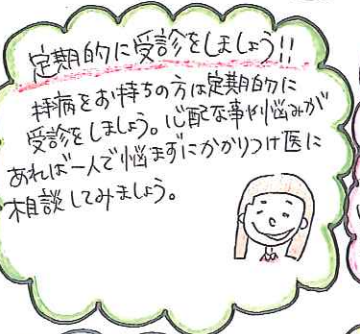 定期的に受診をしましょう!!
持病をお持ちの方は定期的に
受診をしましょう。心配な事や悩みが
あれば一人で悩まずにかかりつけ医に
相談してみましょう。